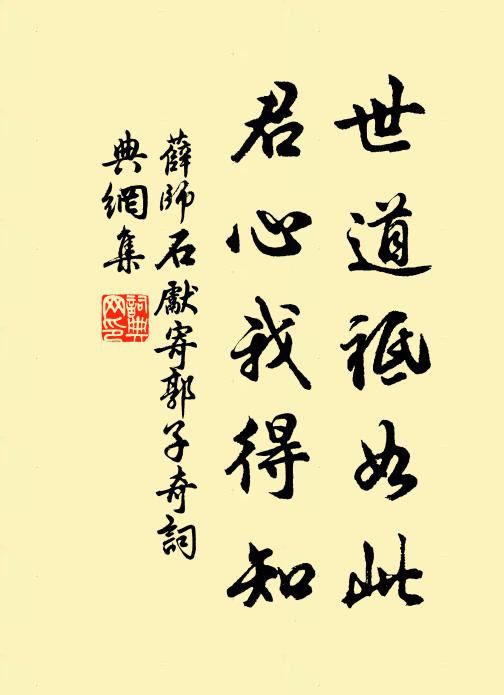 世道祗如此
君心我得知
薛師石獻寄郭子奇詞
典網集
詞典
网印